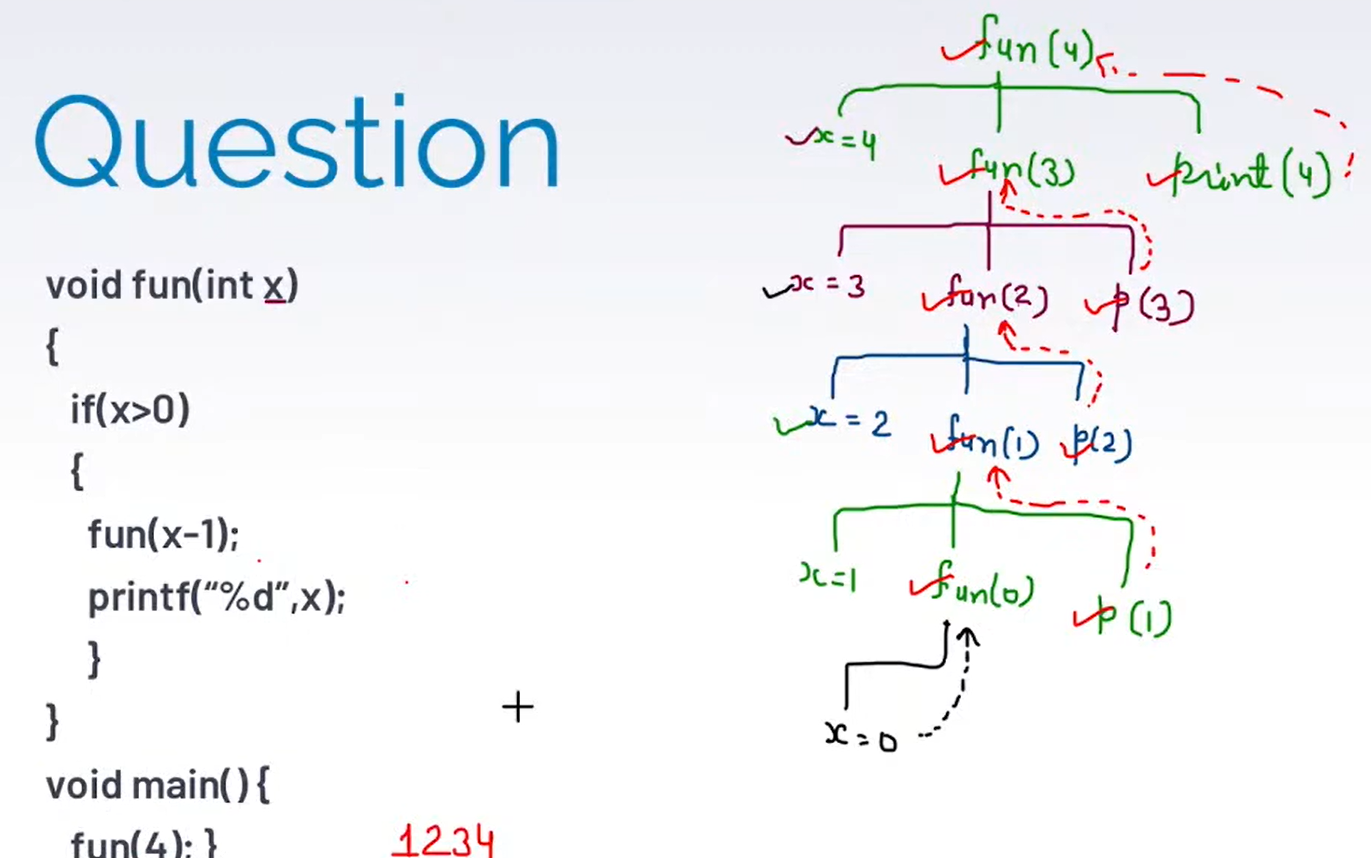 Question
void fun(int x)
{
if(x>0)
{
fun(x-1);
printf("%d",x);
}
}
void main(){
fun(4); }
1234
fun(4)
x=4 fun(3) print(4)
x=3 fun(2) p(3)
x=2 fun(1) p(2)
x=1 fun(0) p(1)
x=0